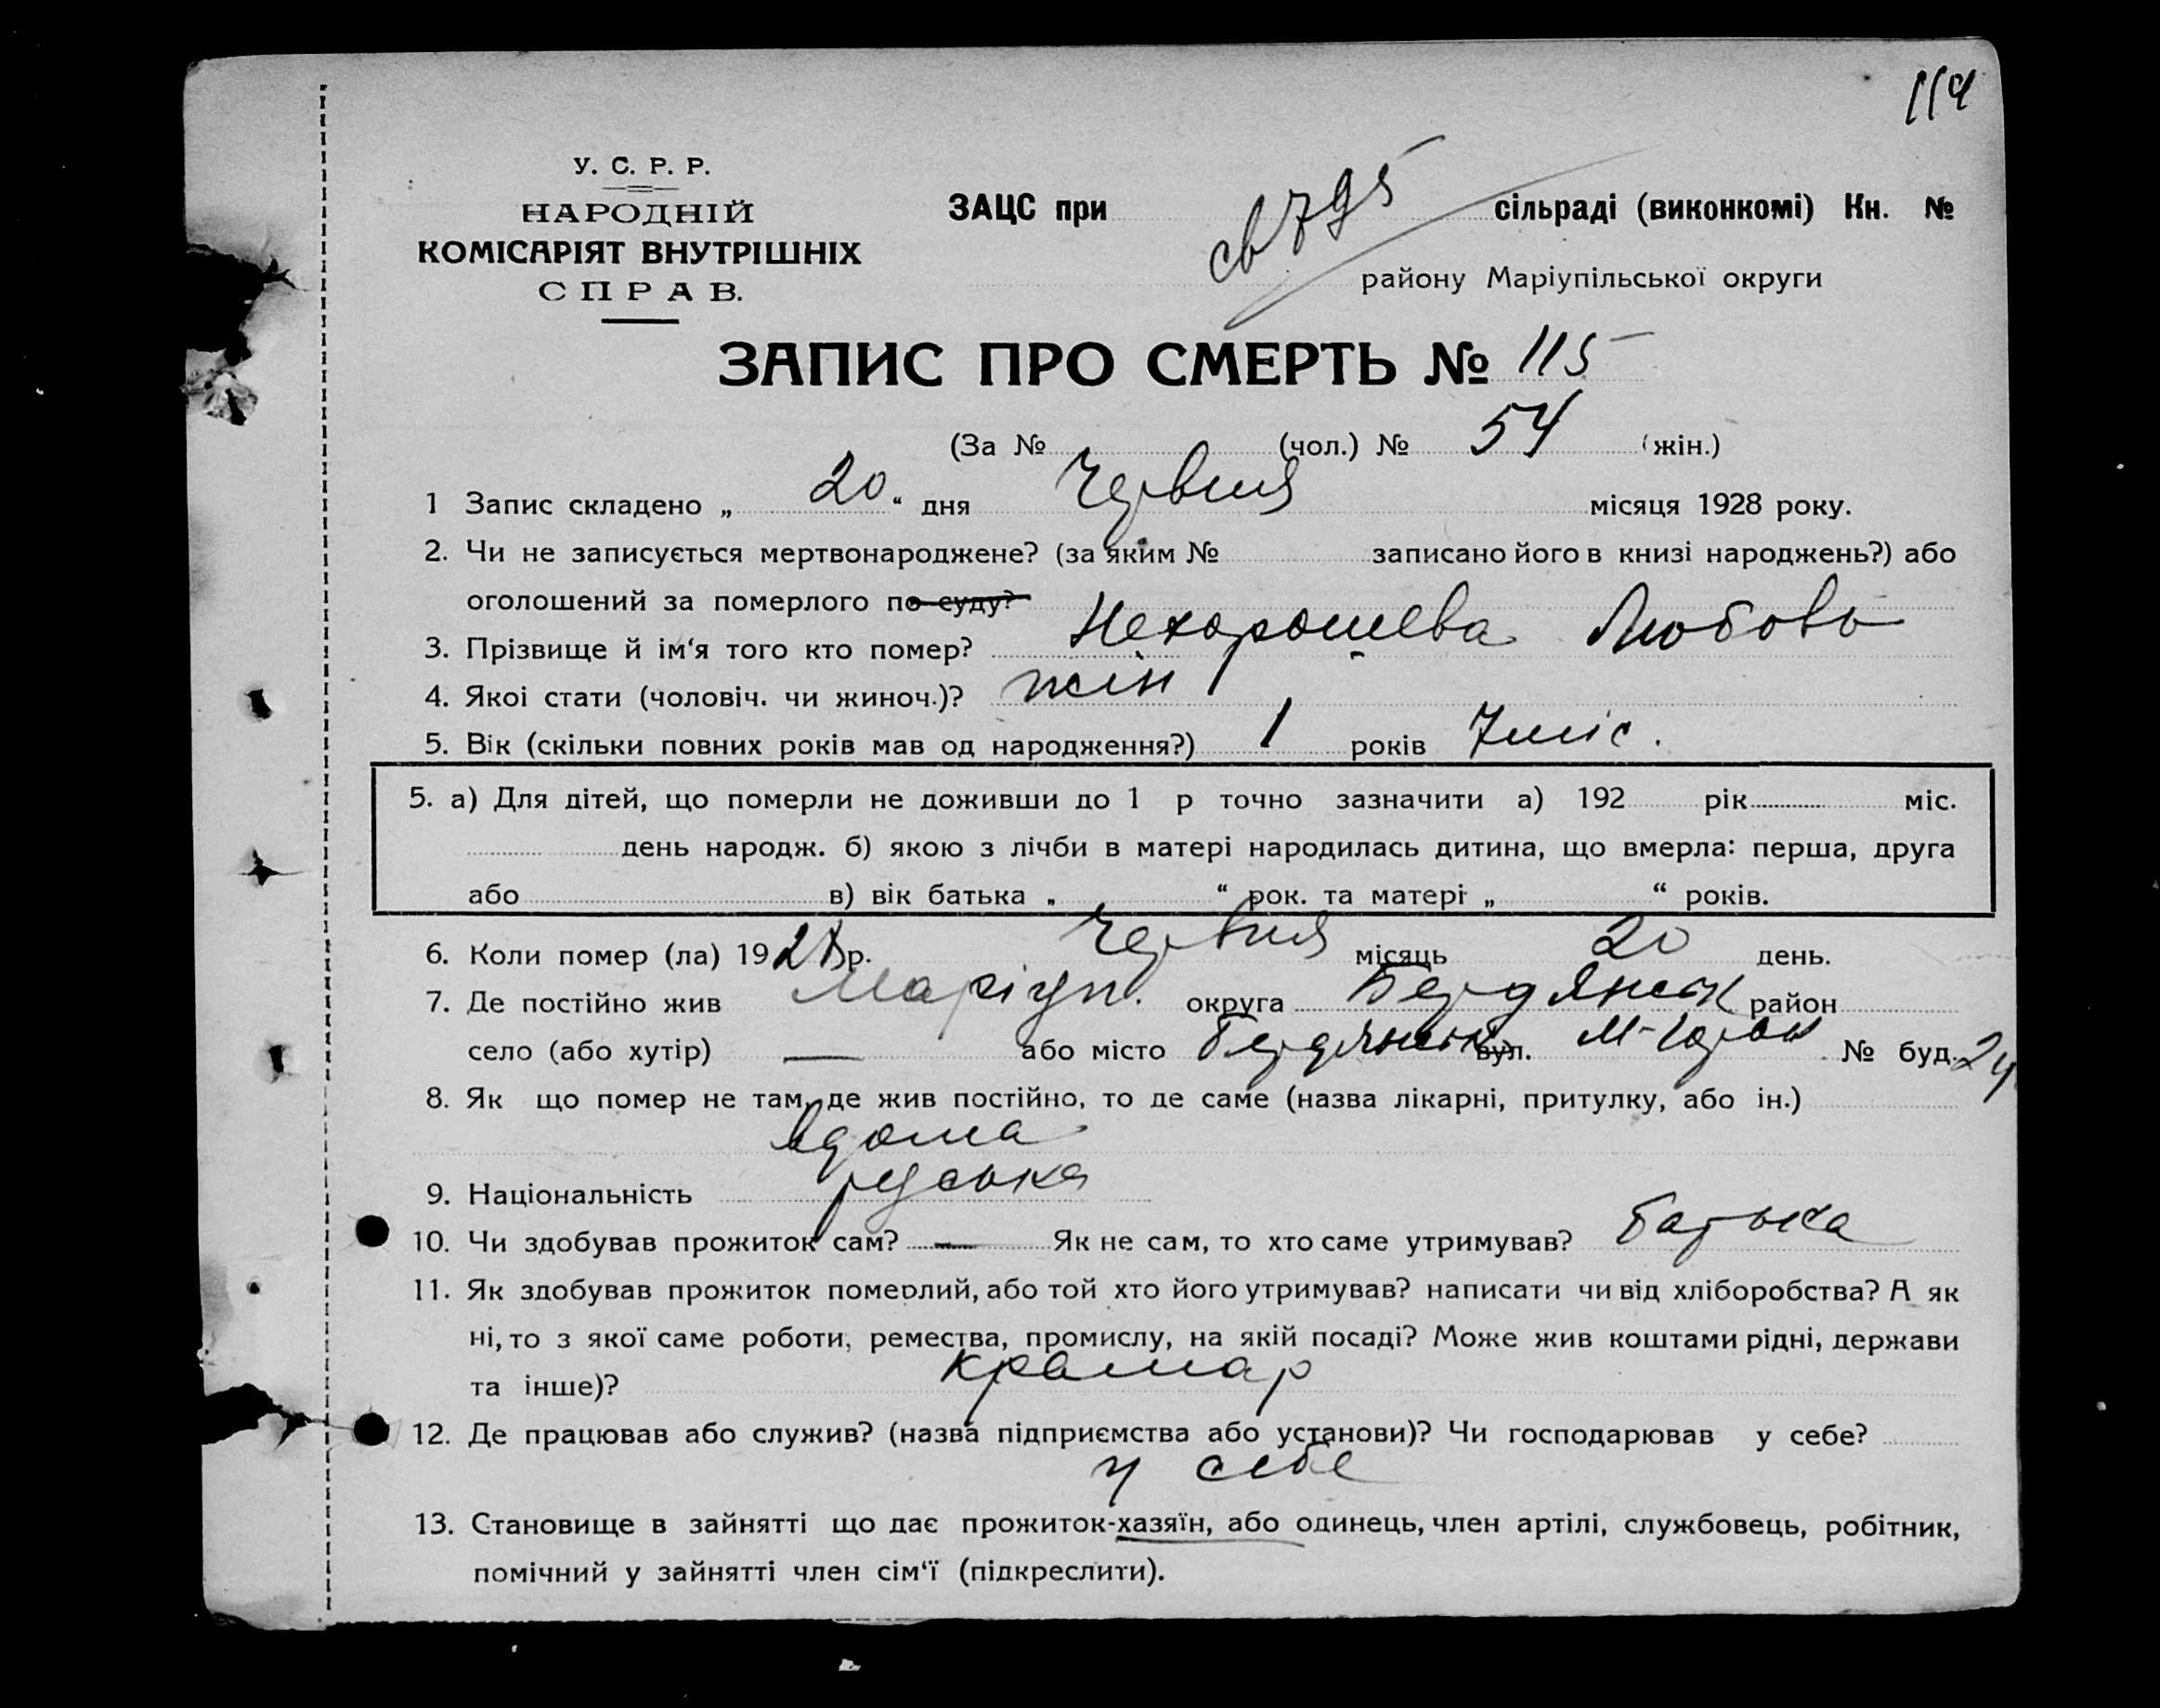 114
У. С. Р. Р.
НАРОДНІЙ
КОМІСАРІЯТ ВНУТРІШНІХ
СПРАВ.
ЗАЦС при св 795 сільраді (виконкомі) Кн. №
району Маріупільської округи
ЗАПИС ПРО СМЕРТЬ № 115
(За № (чол.) № 54 (жін.)
1 Запис складено „ 20 “ дня Червня місяця 1928 року.
2. Чи не записується мертвонароджене? (за яким № записано його в книзі народжень?) або
оголошений за померлого по суду?
3. Прізвище й ім‘я того кто помер? Нехорошева Любовь
4. Якоі стати (чоловіч. чи жиноч.)? жін
5. Вік (скільки повних років мав од народження?) 1 років 7 міс.
5. а) Для дітей, що померли не доживши до 1 р точно зазначити а) 192 рік міс.
день народж. б) якою з лічби в матері народилась дитина, що вмерла: перша, друга
або в) вік батька „ “ рок. та матері „ “ років.
6. Коли помер (ла) 1928 р. Червня місяць 20 день.
7. Де постійно жив Маріуп. округа Бердянськ район
село (або хутір) — або місто Бердянськ вул. № буд. 24
8. Як що помер не там, де жив постійно, то де саме (назва лікарні, притулку, або ін.)
вдома
9. Національність руська
10. Чи здобував прожиток сам? — Як не сам, то хто саме утримував? батька
11. Як здобував прожиток померлий, або той хто його утримував? написати чи від хліборобства? А як
ні, то з якої саме роботи, ремества, промислу, на якій посаді? Може жив коштами рідні, держави
та інше)? крамар
12. Де працював або служив? (назва підприємства або установи)? Чи господарював у себе?
у себе
13. Становище в зайнятті що дає прожиток-хазяїн, або одинець, член артілі, службовець, робітник,
помічний у зайнятті член сім‘ї (підкреслити).